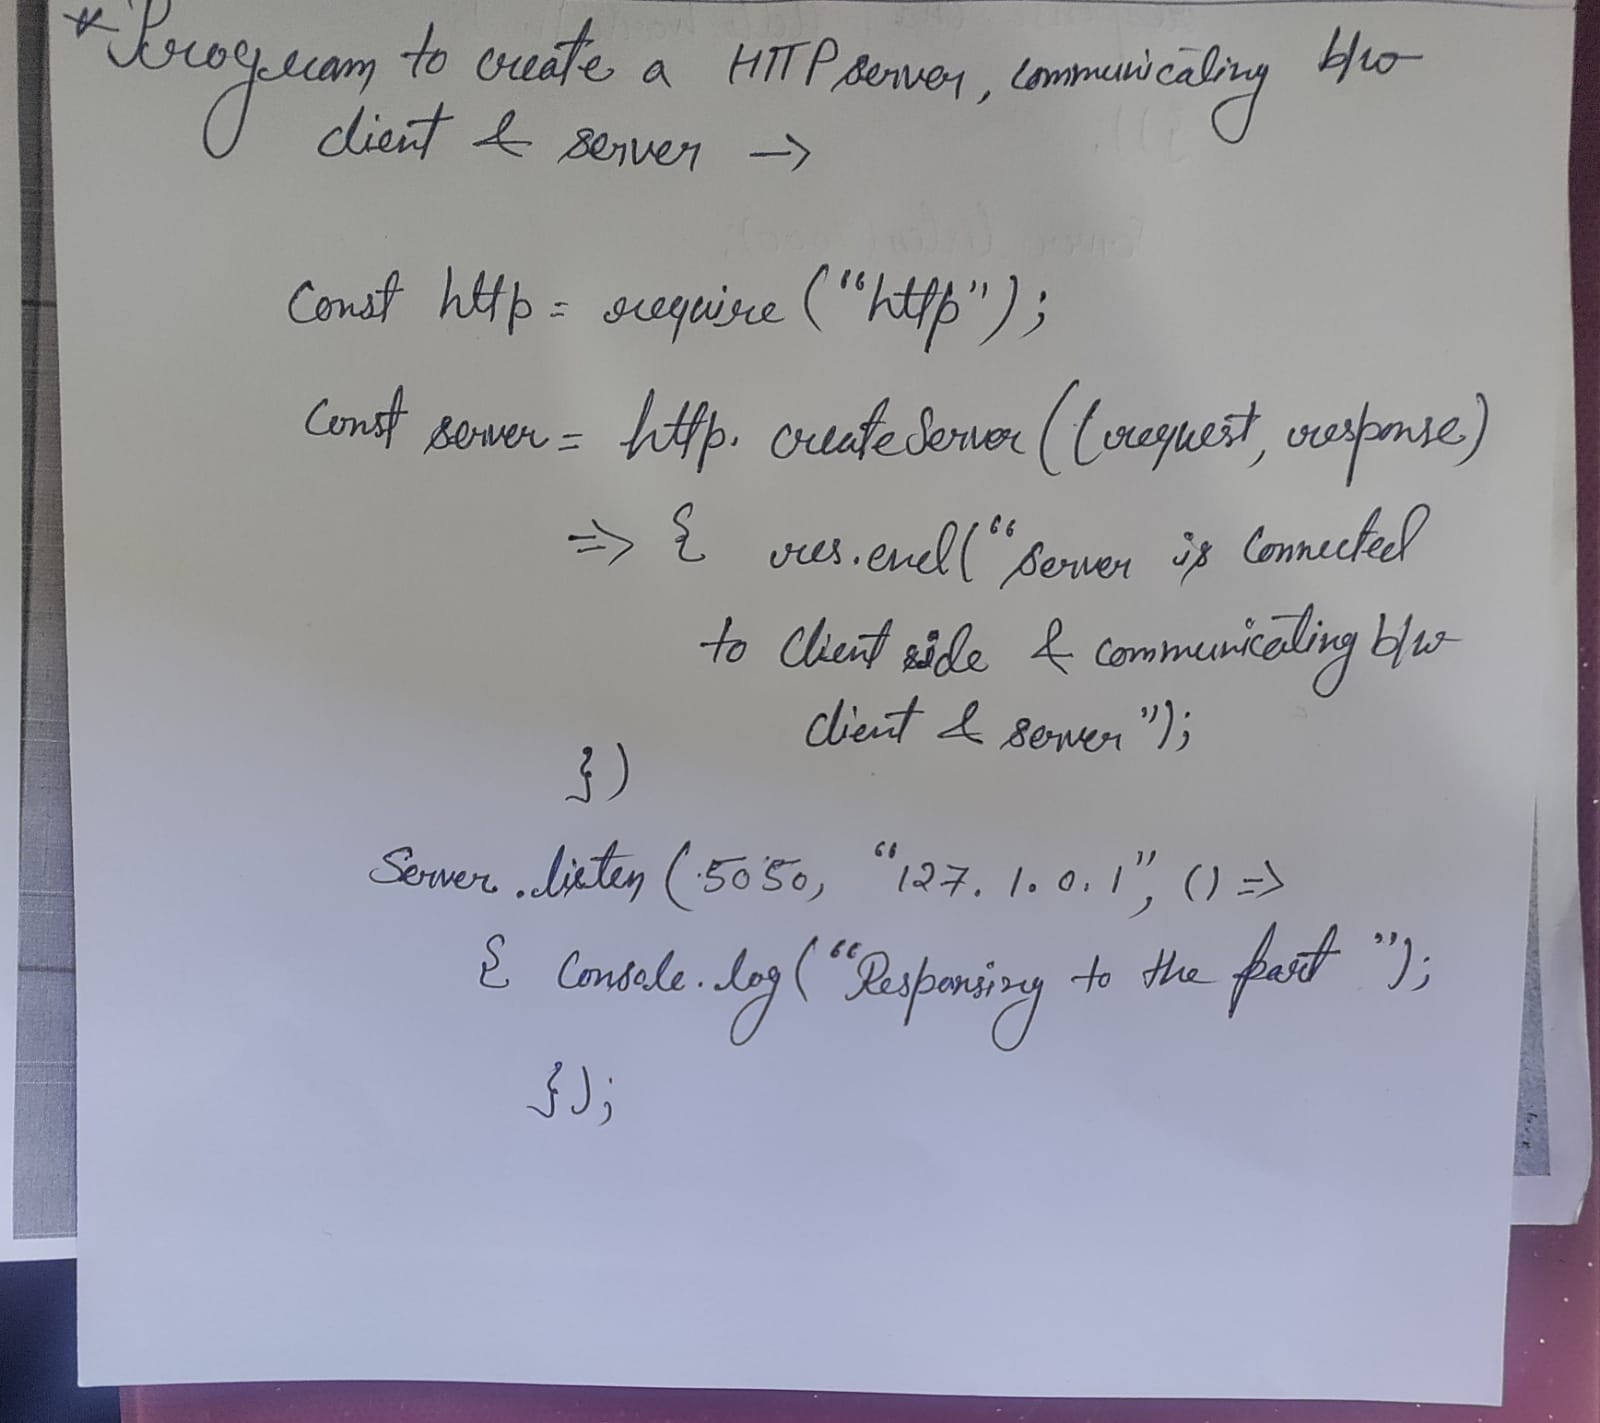 * Program to create a HTTP server, communicating b/w
client & server →
const http = require ("http");
const server = http. createServer ((request, response)
=> { res.end("server is connected
to client side & communicating b/w
client & server");
})
Server.listen (5050, "127. 1. 0. 1", () =>
{ console.log("Responsing to the port ");
});